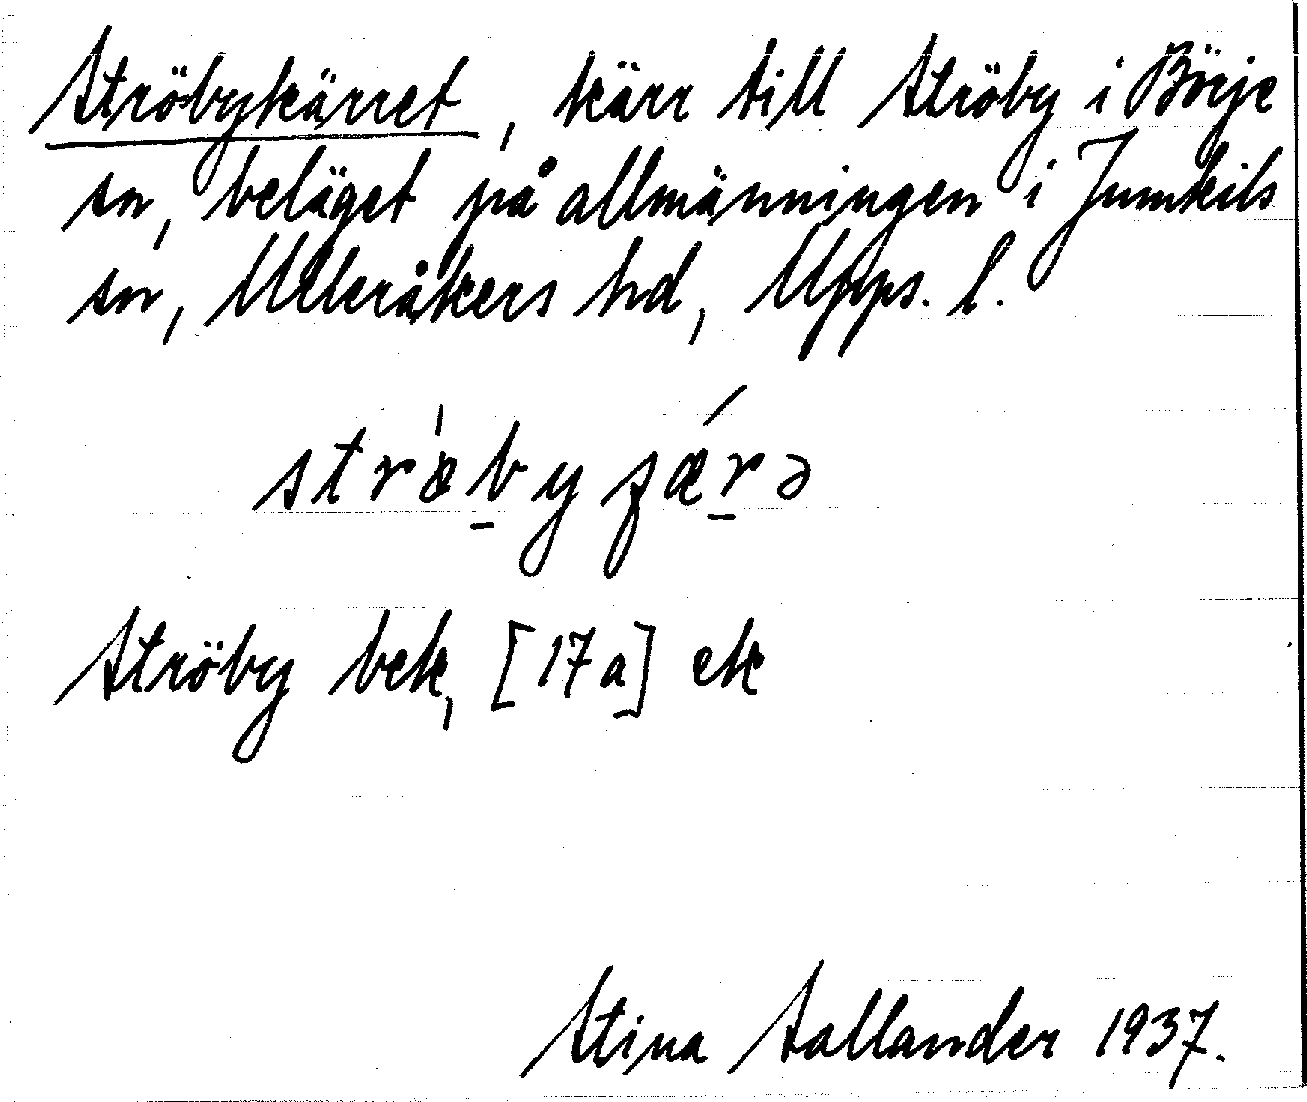 Ströbykärret, kärr till Ströby i Börje
sn, beläget på allmänningen i Jumkils
sn, Ulleråkers hd, Upps. l.
strö̀by ɟǽrə
Ströby bek, [17a] ek
Stina Sallander 1937.